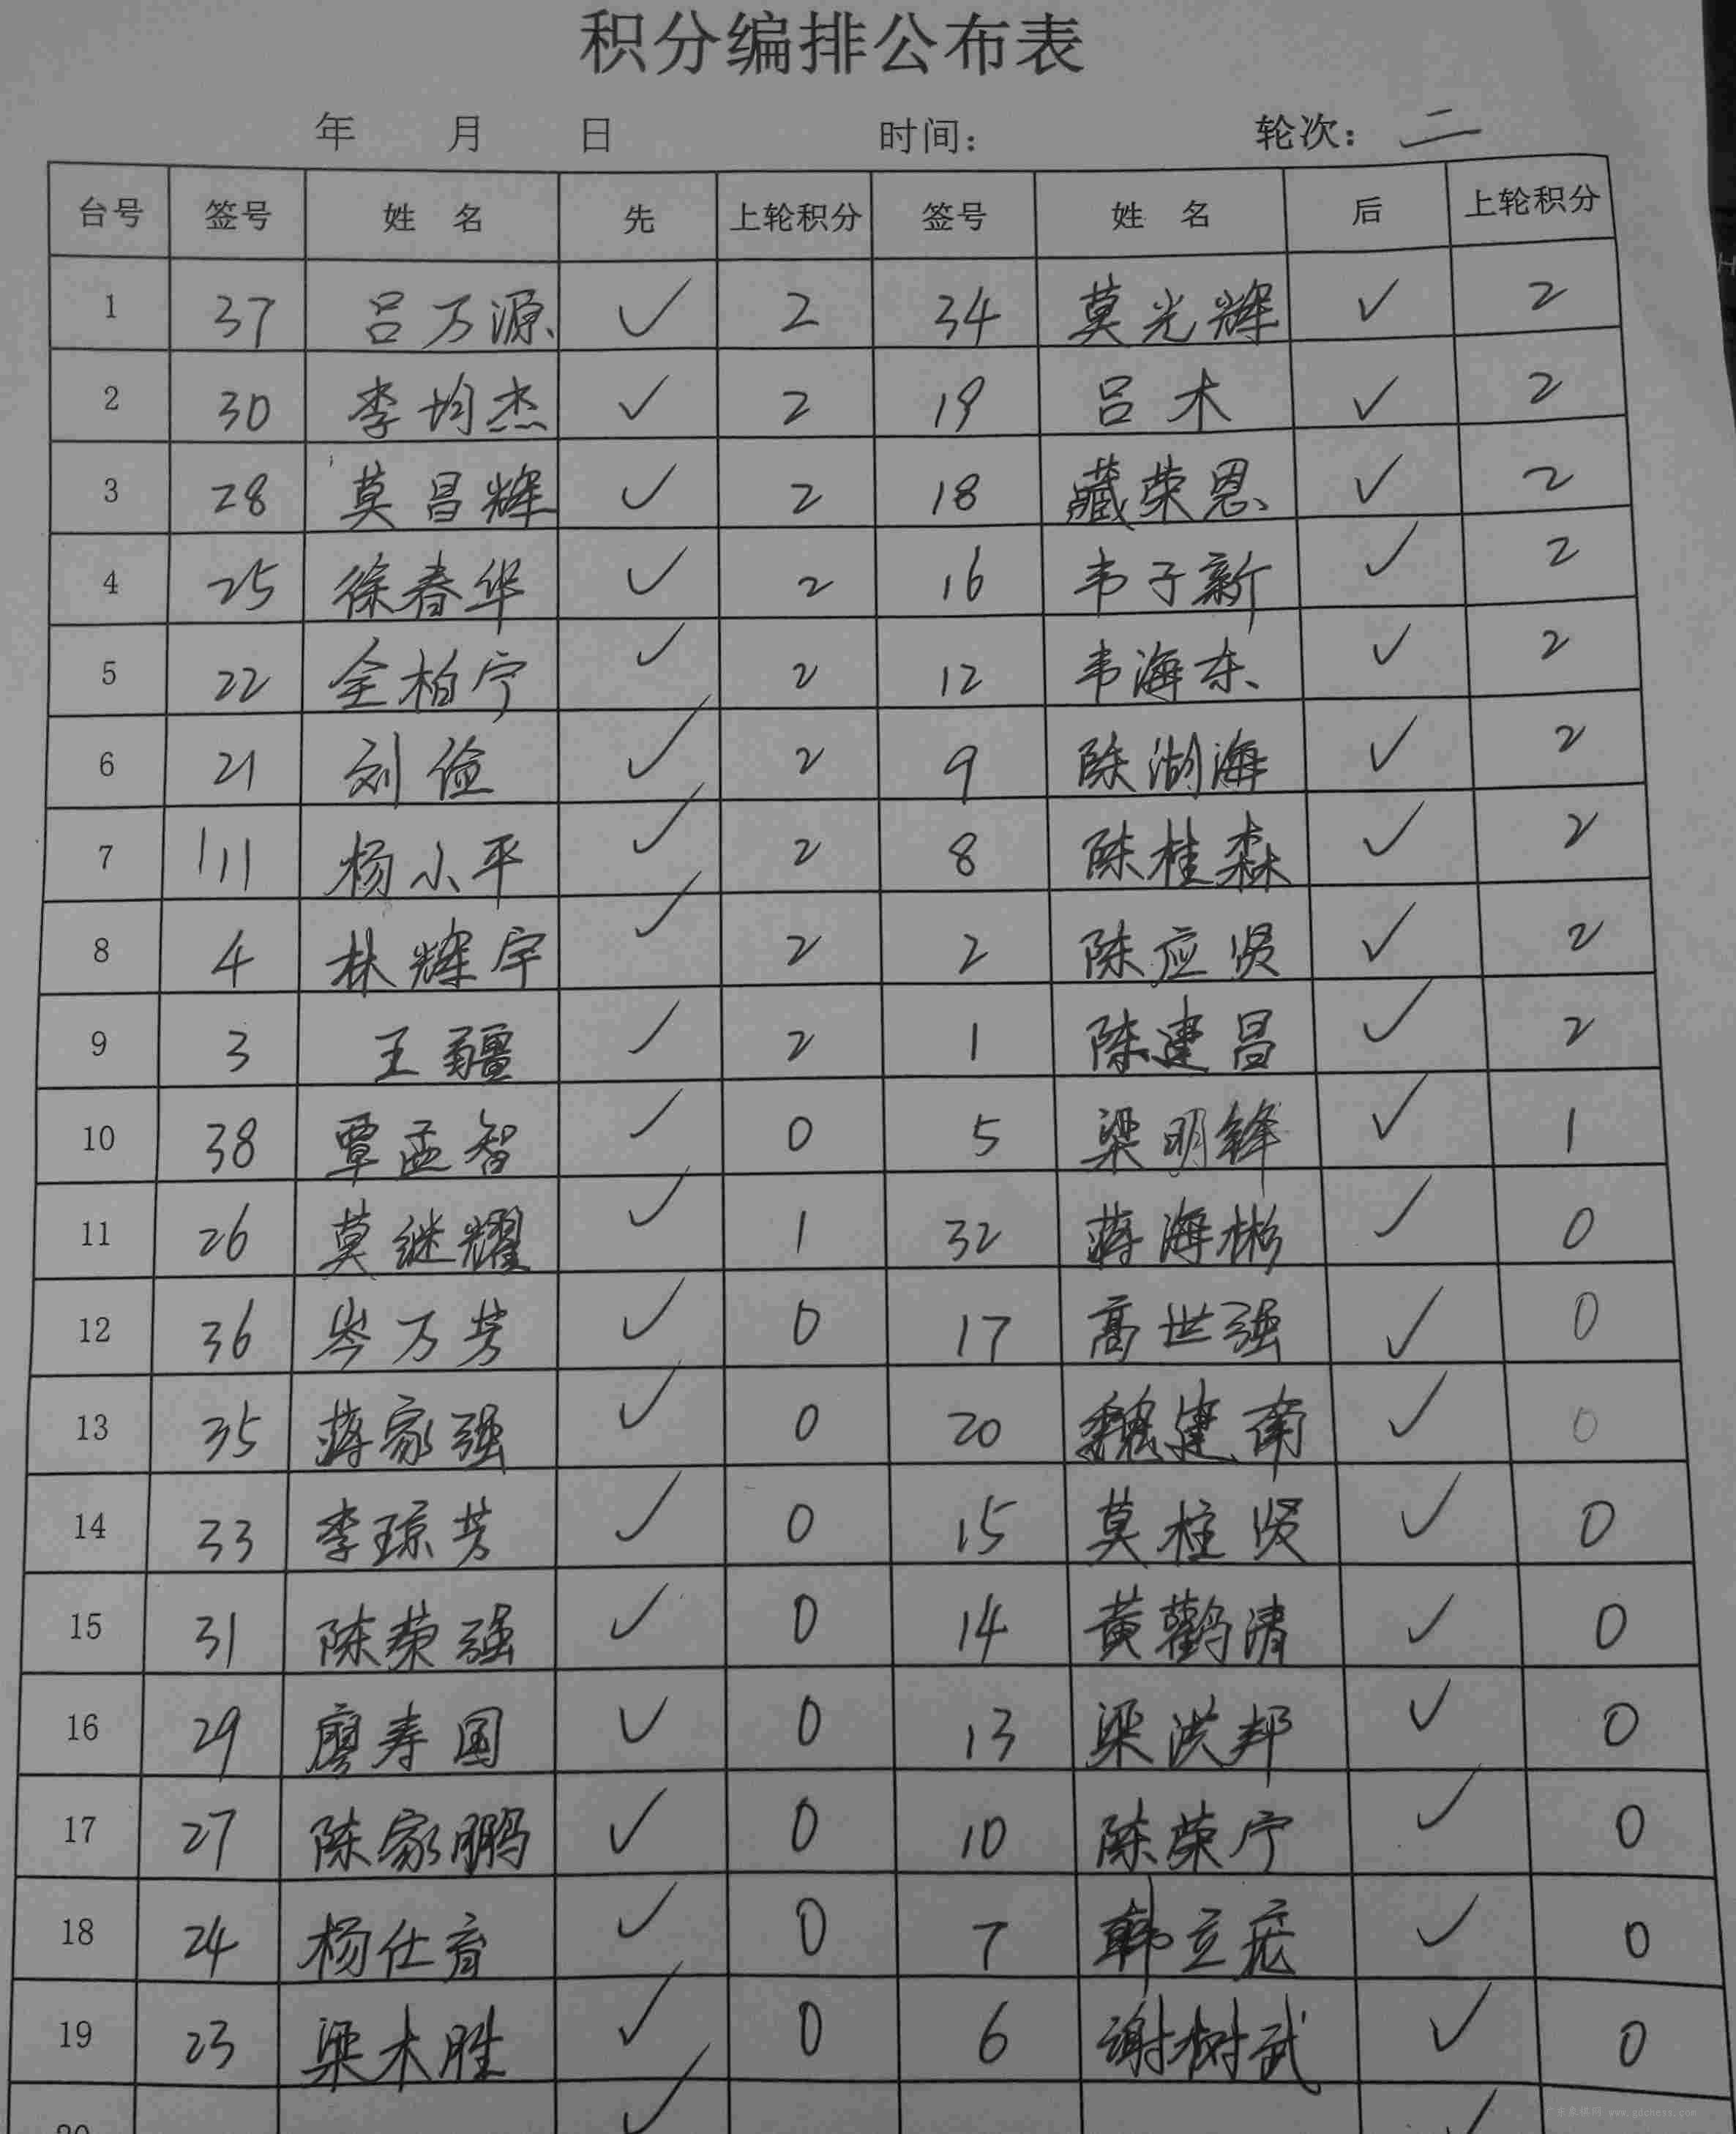 积分编排公布表
年 月 日 时间: 轮次: 二
台号 签号 姓 名 先 上轮积分 签号 姓 名 后 上轮积分
1 37 吕万源 ✓ 2 34 莫光辉 ✓ 2
2 30 李均杰 ✓ 2 19 吕木 ✓ 2
3 28 莫昌辉 ✓ 2 18 藏荣恩 ✓ 2
4 25 徐春华 ✓ 2 16 韦子新 ✓ 2
5 22 全柏宁 ✓ 2 12 韦海东 ✓ 2
6 21 刘俭 ✓ 2 9 陈湖海 ✓ 2
7 11 杨小平 ✓ 2 8 陈桂森 ✓ 2
8 4 林辉宇 ✓ 2 2 陈应贤 ✓ 2
9 3 王疆 ✓ 2 1 陈建昌 ✓ 2
10 38 覃孟智 ✓ 0 5 梁明锋 ✓ 1
11 26 莫继耀 ✓ 1 32 蒋海彬 ✓ 0
12 36 岑万芳 ✓ 0 17 高世强 ✓ 0
13 35 蒋家强 ✓ 0 20 魏建南 ✓ 0
14 33 李琼芳 ✓ 0 15 莫柱贤 ✓ 0
15 31 陈荣强 ✓ 0 14 黄鹳清 ✓ 0
16 29 廖寿国 ✓ 0 13 梁洪邦 ✓ 0
17 27 陈家鹏 ✓ 0 10 陈荣宁 ✓ 0
18 24 杨仕育 ✓ 0 7 韩立 ✓ 0
19 23 梁木胜 ✓ 0 6 谢树武 ✓ 0
✓ ✓
www.gdchess.com